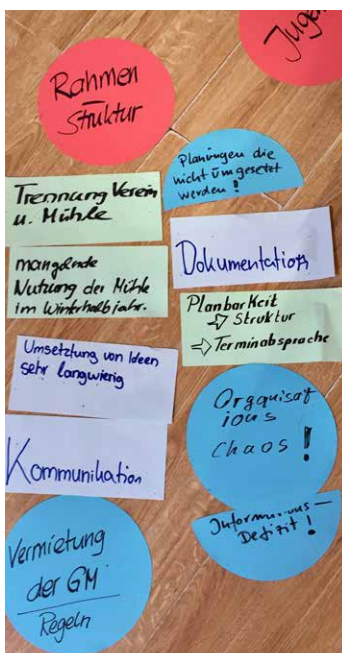 Rahmen
Struktur
Jugen
Planungen die
nicht umgesetzt
werden!
Trennung Verein
u. Mühle
Dokumentation
mangelnde
Nutzung der Mühle
im Winterhalbjahr.
Planbarkeit
⇨ Struktur
⇨ Terminabsprache
Umsetztung von Ideen
sehr langwierig
Orgquisat
ious
Chaos!
Kommunikation
Informations-
Defizit!
Vermietung
der GM
Regeln